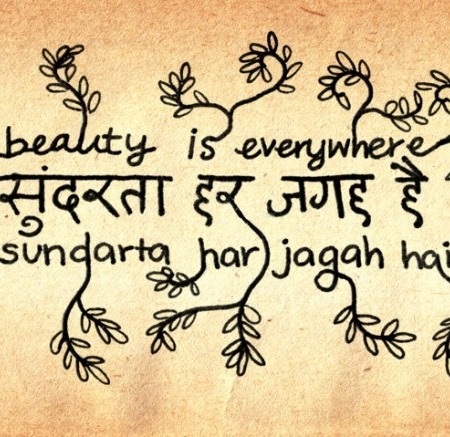 beauty is everywhere
सुंदरता हर जगह है
sundarta har jagah hai